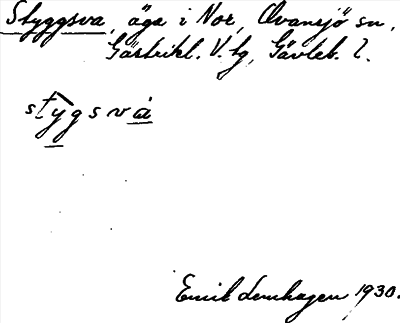 Styggsva, äga i Nor, Ovansjö sn,
Gästrikl. V. tg, Gävleb. l.
stygsva
Emil Lenhagen 1930.